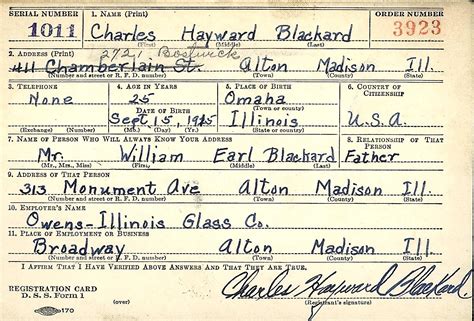 SERIAL NUMBER 1. NAME (Print) ORDER NUMBER
1011 Charles Hayward Blackard 3923
(First) (Middle) (Last)
2. ADDRESS (Print) 2721 Bostwick
411 Chamberlain St. Alton Madison Ill.
(Number and street or R. F. D. number) (Town) (County) (State)
3. TELEPHONE 4. AGE IN YEARS 5. PLACE OF BIRTH 6. COUNTRY OF CITIZENSHIP
None 25 Omaha
DATE OF BIRTH (Town or county)
Sept. 15, 1915 Illinois U.S.A.
(Exchange) (Number) (Mo.) (Day) (Yr.) (State or country)
7. NAME OF PERSON WHO WILL ALWAYS KNOW YOUR ADDRESS 8. RELATIONSHIP OF THAT PERSON
Mr. William Earl Blackard Father
(Mr., Mrs., Miss) (First) (Middle) (Last)
9. ADDRESS OF THAT PERSON
313 Monument Ave Alton Madison Ill.
(Number and street or R. F. D. number) (Town) (County) (State)
10. EMPLOYER'S NAME
Owens-Illinois Glass Co.
11. PLACE OF EMPLOYMENT OR BUSINESS
Broadway Alton Madison Ill.
(Number and street or R. F. D. number) (Town) (County) (State)
I AFFIRM THAT I HAVE VERIFIED ABOVE ANSWERS AND THAT THEY ARE TRUE.
REGISTRATION CARD Charles Hayward Blackard.
D. S. S. Form 1 (over) (Registrant's signature)
170